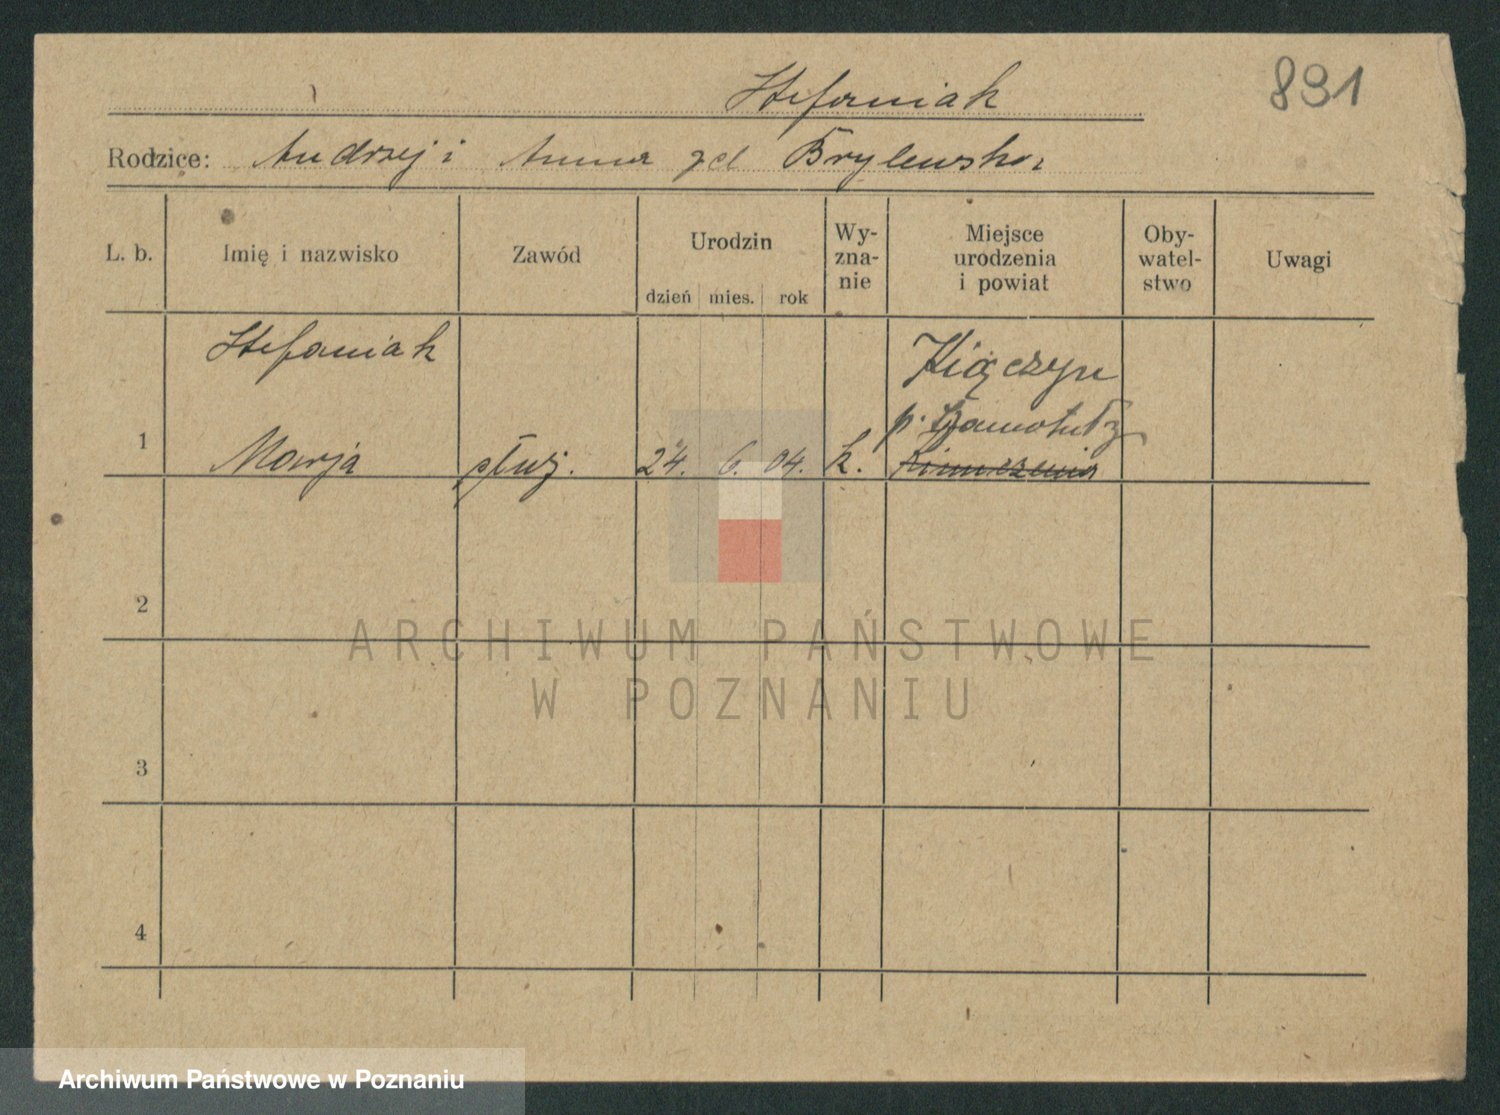 Stefaniak
891
Rodzice: Andrzej i Anna zd Brylewska
L. b.
Imię i nazwisko
Zawód
Urodzin
dzień mies. rok
Wy-
zna-
nie
Miejsce
urodzenia
i powiat
Oby-
watel-
stwo
Uwagi
1
Stefaniak
Marja
służ.
24. 6. 04.
k.
Kiączyn
p. Szamotuły
2
3
4
ARCHIWUM PAŃSTWOWE
W POZNANIU
Archiwum Państwowe w Poznaniu